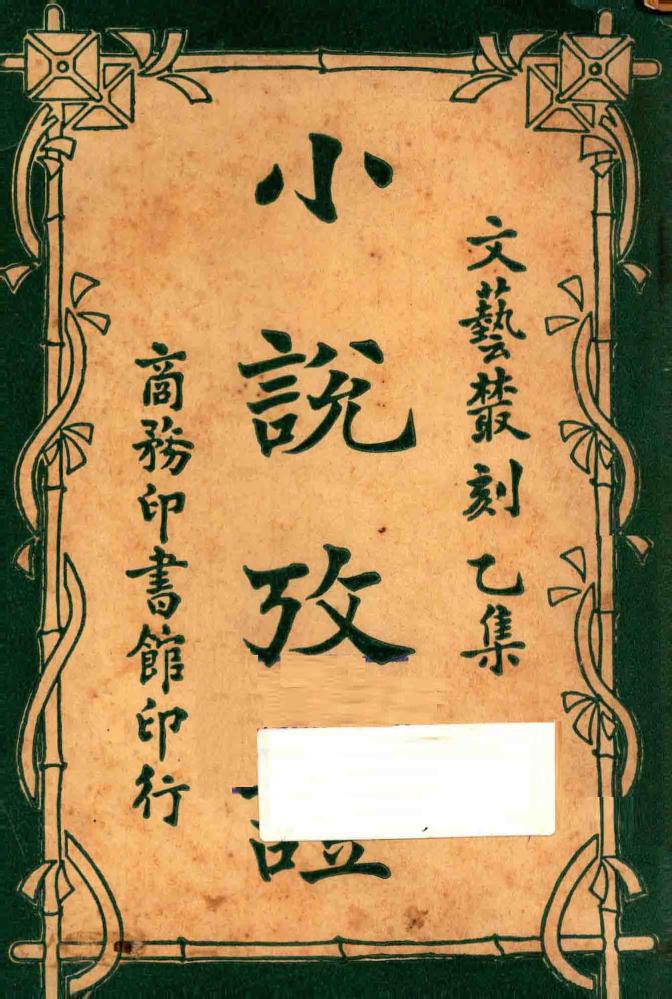 文藝叢刻乙集
小說攷證
商務印書館印行